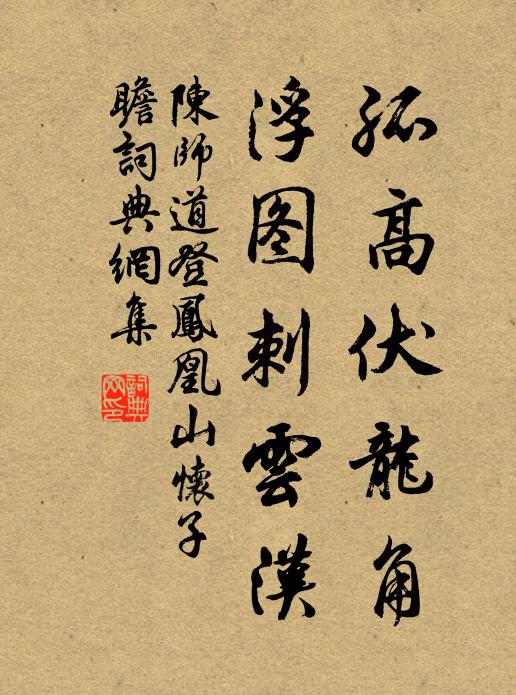 孤高伏龍角
浮图刺雲漢
陳師道登鳳凰山懷子
瞻詞典網集
詞典网印